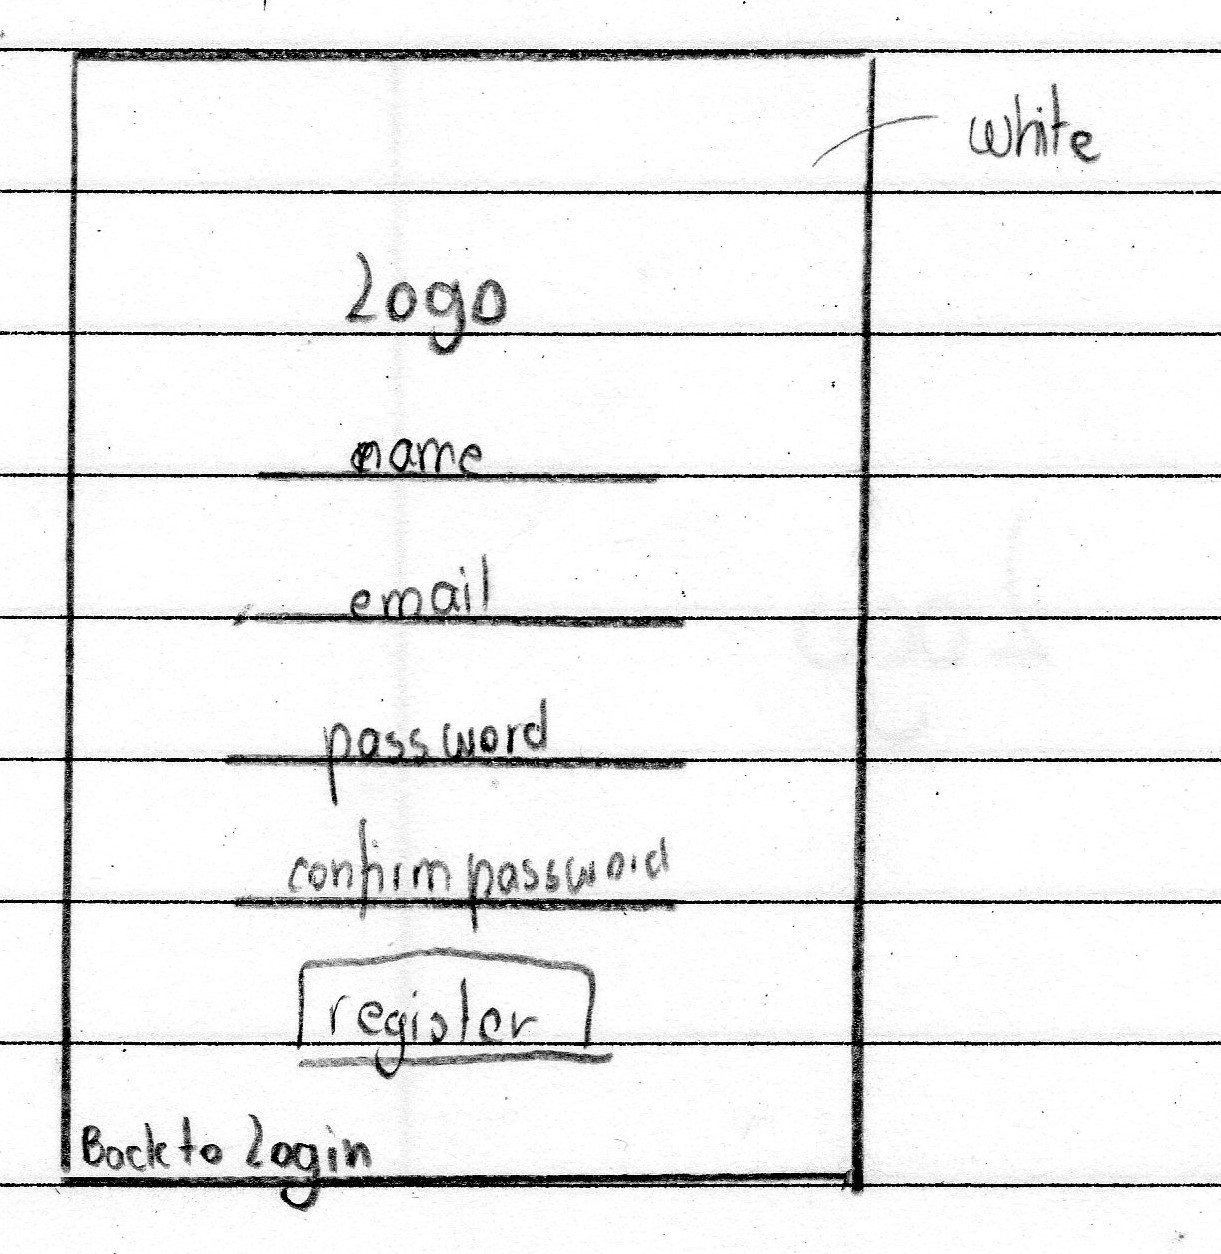 white
Logo
name
email
password
confirm password
register
Back to Login